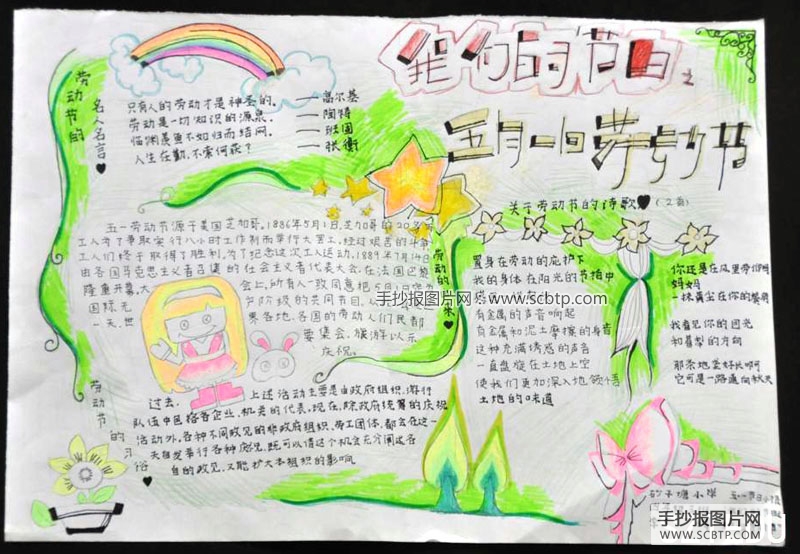 的节日之
五月一日劳动节
劳动节的
名人名言
只有人的劳动才是神圣的。——高尔基
劳动是一切知识的源泉。——陶铸
临渊羡鱼不如归而结网。——班固
人生在勤,不索何获?——张衡
关于劳动节的诗歌(2首)
五一劳动节源于美国芝加哥。1886年5月1日,芝加哥的20多万
工人为了争取实行八小时工作制而举行大罢工,经过艰苦的斗争
工人们终于取得了胜利。为了纪念这次工人运动,1889年7月14日
由各国马克思主义者召集的社会主义者代表大会,在法国巴黎
隆重开幕。大会上,所有人一致同意把5月1日定为
国际无产阶级的共同节日。
一天,世界各地,各国的劳动人们民都
要集会、旅游以示
庆祝。
劳动节的由来
置身在劳动的庇护下
我的身体在阳光的节拍中
有金属的声音响起
有金属和泥土摩擦的身音
这种充满诱惑的声音
一直盘旋在土地上空
使我们更加深入地领悟
土地的味道
你还是在风里劳作吗
妈妈
一抹黄尘在你的鬓角
我看见你的目光
和喜梨的方向
它可是一路通向秋天
手抄报图片网 www.scbtp.com
劳动节的习俗
过去,上述活动主要是由政府组织,游行
队伍中包括各企业、机关的代表。现在,除政府统筹的庆祝
活动外,各种不同政见的非政府组织、劳工团体,都会在这一
天自发举行各种庆祝,既可以借这个机会充分阐述各
自的政见,又能扩大本组织的影响
砂子塘小学
手抄报图片网
WWW.SCBTP.COM